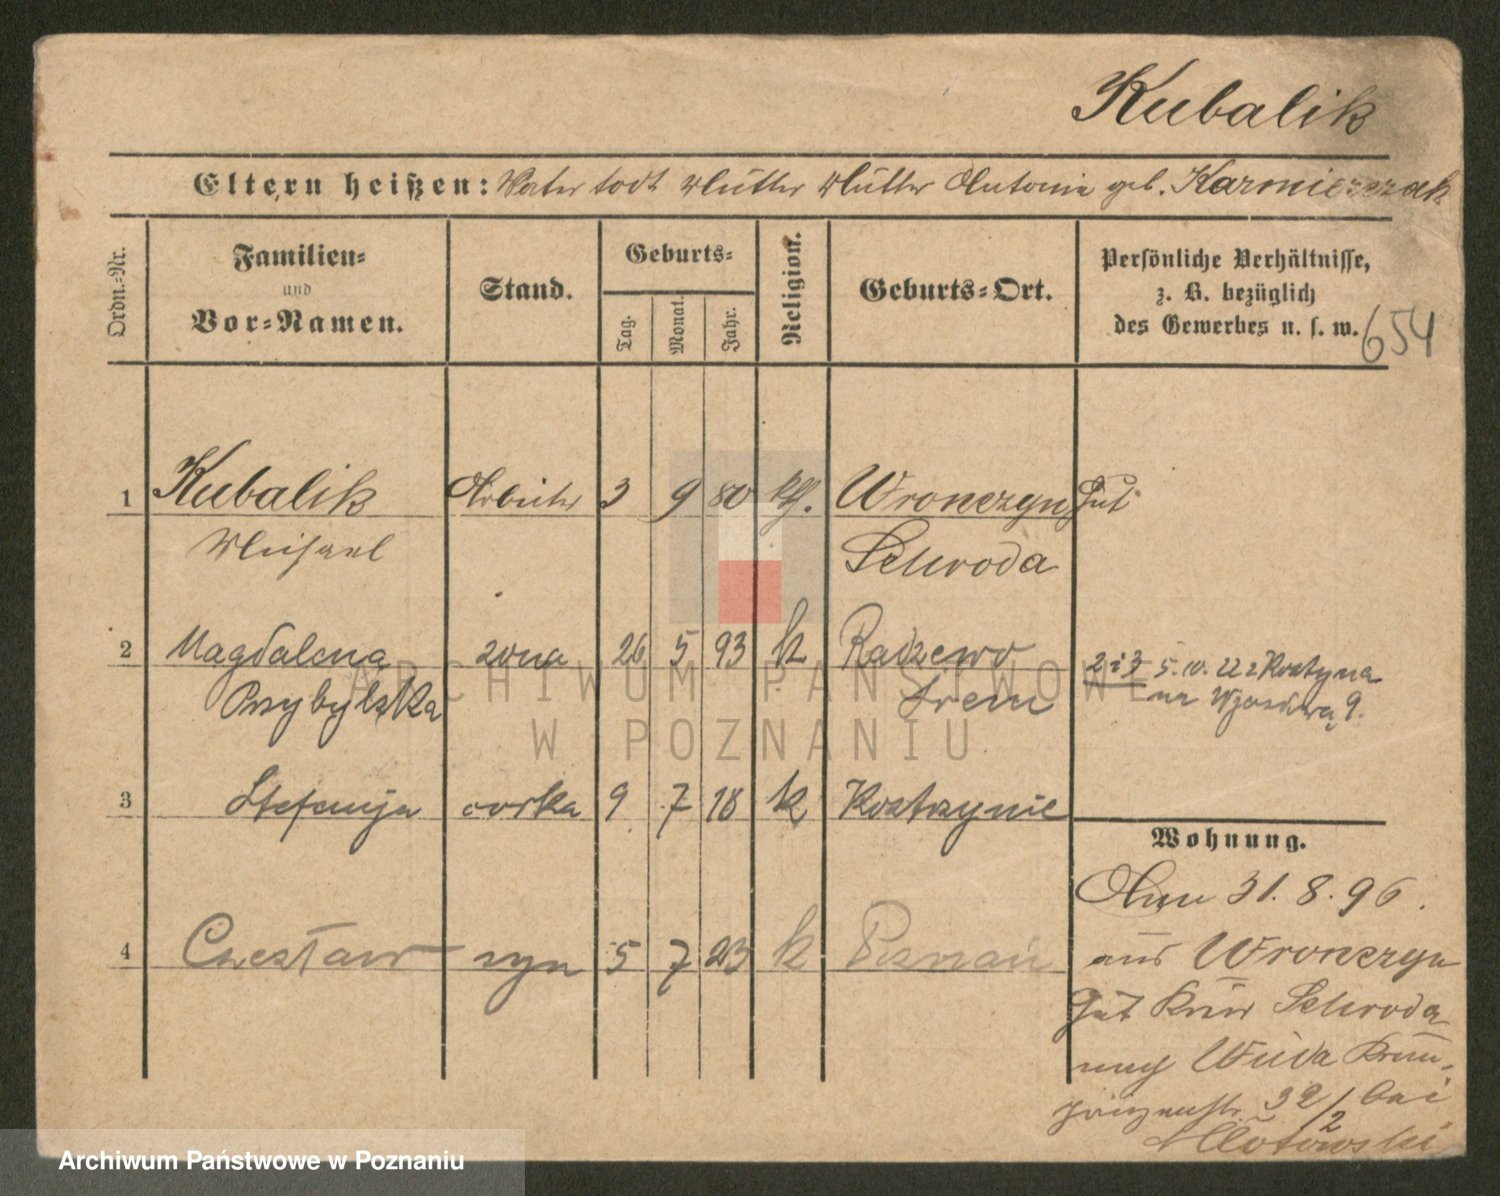 Kubalik
Eltern heißen: Vater todt Mutter Mutter Antonie geb. Kazmierczak
Ordn.-Nr.
Familien-
und
Vor-Namen.
Stand.
Geburts-
Tag.
Monat.
Jahr.
Religion.
Geburts-Ort.
Persönliche Verhältnisse,
z. B. bezüglich
des Gewerbes u. s. w.
654
1 Kubalik Arbeiter 3 9 80 kth. Wronczyn Gut
Michael Schroda
2 Magdalena zona 26 5 93 k Radzewo
Przybylska Srem
2 i 3 5. 10. 22 z Kostrzyna
na 9.
3 Stefanja corka 9 7 18 k Kostrzynie
Wohnung.
31. 8. 96.
4 Czesław syn 5 7 23 k Poznań
aus Wronczyn
Gut Kreis Schroda
nach Wilda Kron-
prinzenstr. 32/2 bei
ARCHIWUM PAŃSTWOWE
W POZNANIU
Archiwum Państwowe w Poznaniu